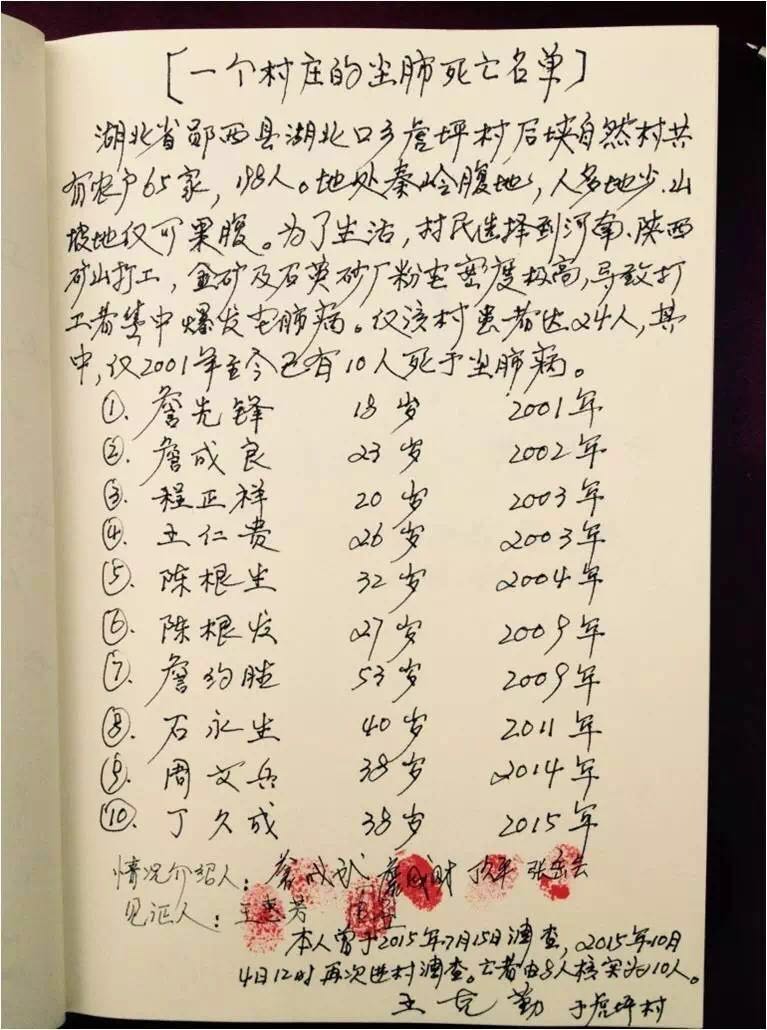 [一个村庄的尘肺死亡名单]
湖北省郧西县湖北口乡虎坪村后坡自然村共
有农户65家，198人。地处秦岭腹地，人多地少.山
坡地仅可果腹。为了生活，村民选择到河南、陕西
矿山打工，金矿及石英砂厂粉尘密度极高，导致打
工者集中爆发尘肺病。仅该村患者达24人，其
中，仅2001年至今已有10人死于尘肺病。
①. 詹先锋 18岁 2001年
②. 詹成良 23岁 2002年
③. 程正祥 20岁 2003年
④. 王仁贵 26岁 2003年
⑤. 陈根生 32岁 2004年
⑥. 陈根发 27岁 2009年
⑦. 詹约胜 53岁 2009年
⑧. 石永生 40岁 2011年
⑨. 周文兵 38岁 2014年
⑩. 丁久成 38岁 2015年
情况介绍人：詹成武 詹成财
见证人：王惠芳
本人曾于2015年7月15日调查，2015年10月
4日12时再次进村调查。亡者由8人核实为10人。
王克勤 于虎坪村